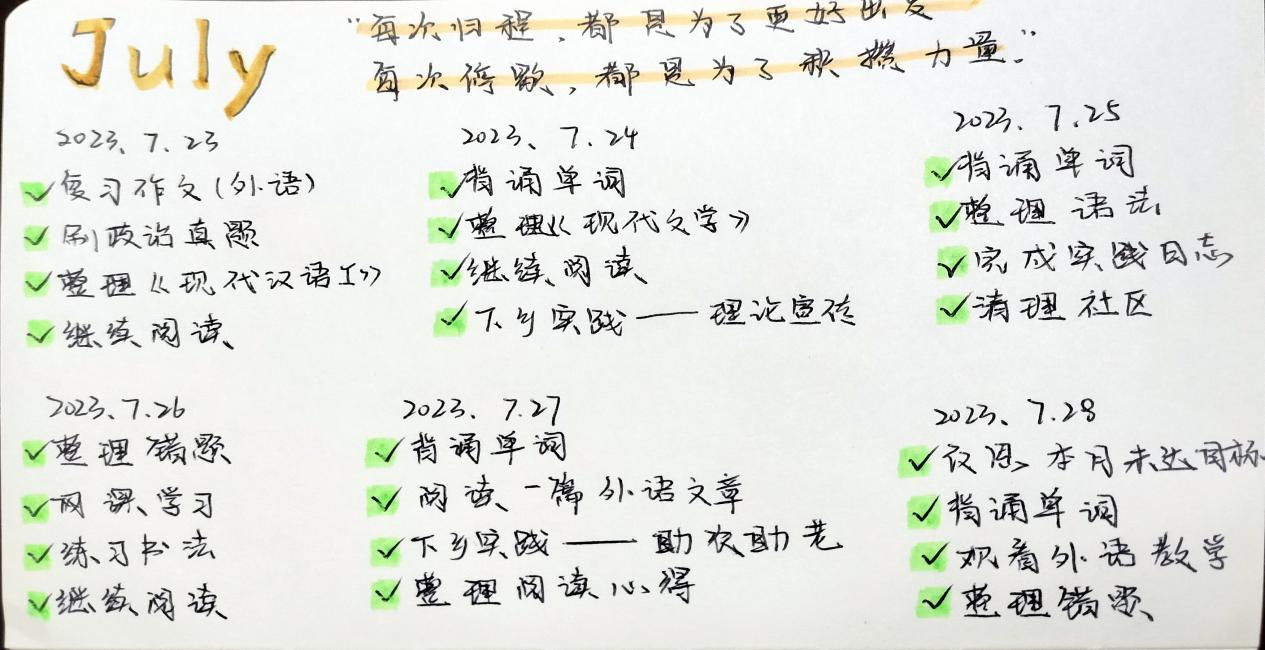 July
"每次归程,都是为了更好出发
每次停歇,都是为了积攒力量."
2023、7.23
复习作文(外语)
刷政治真题
整理《现代汉语I》
继续阅读
2023、7.24
背诵单词
整理《现代文学》
继续阅读
下乡实践——理论宣传
2023、7.25
背诵单词
整理语法
完成实践日志
清理社区
2023、7.26
整理错题
网课学习
练习书法
继续阅读
2023、7.27
背诵单词
阅读一篇外语文章
下乡实践——助农助老
整理阅读心得
2023、7.28
本月未达目标
背诵单词
观看外语教学
整理错题